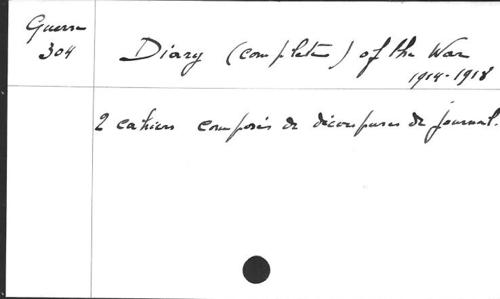 Guerre
304
Diary (complete) of the War
1914-1918
2 cahiers composés de découpures de journal.